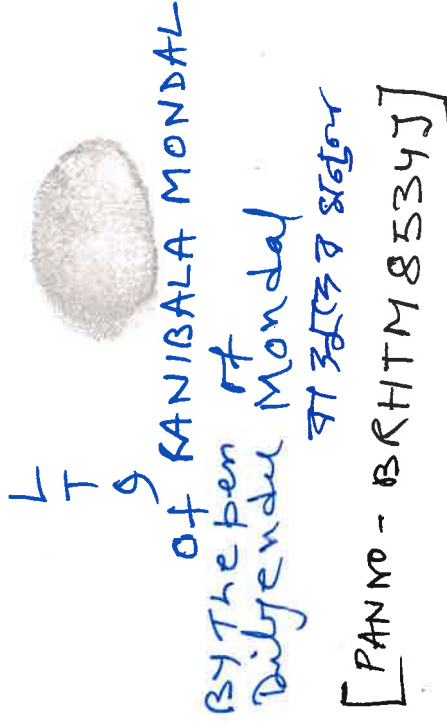 L
T
I
Of RANIBALA MONDAL
By The pen of
Mondal
[PAN NO - BRHTM8534J]